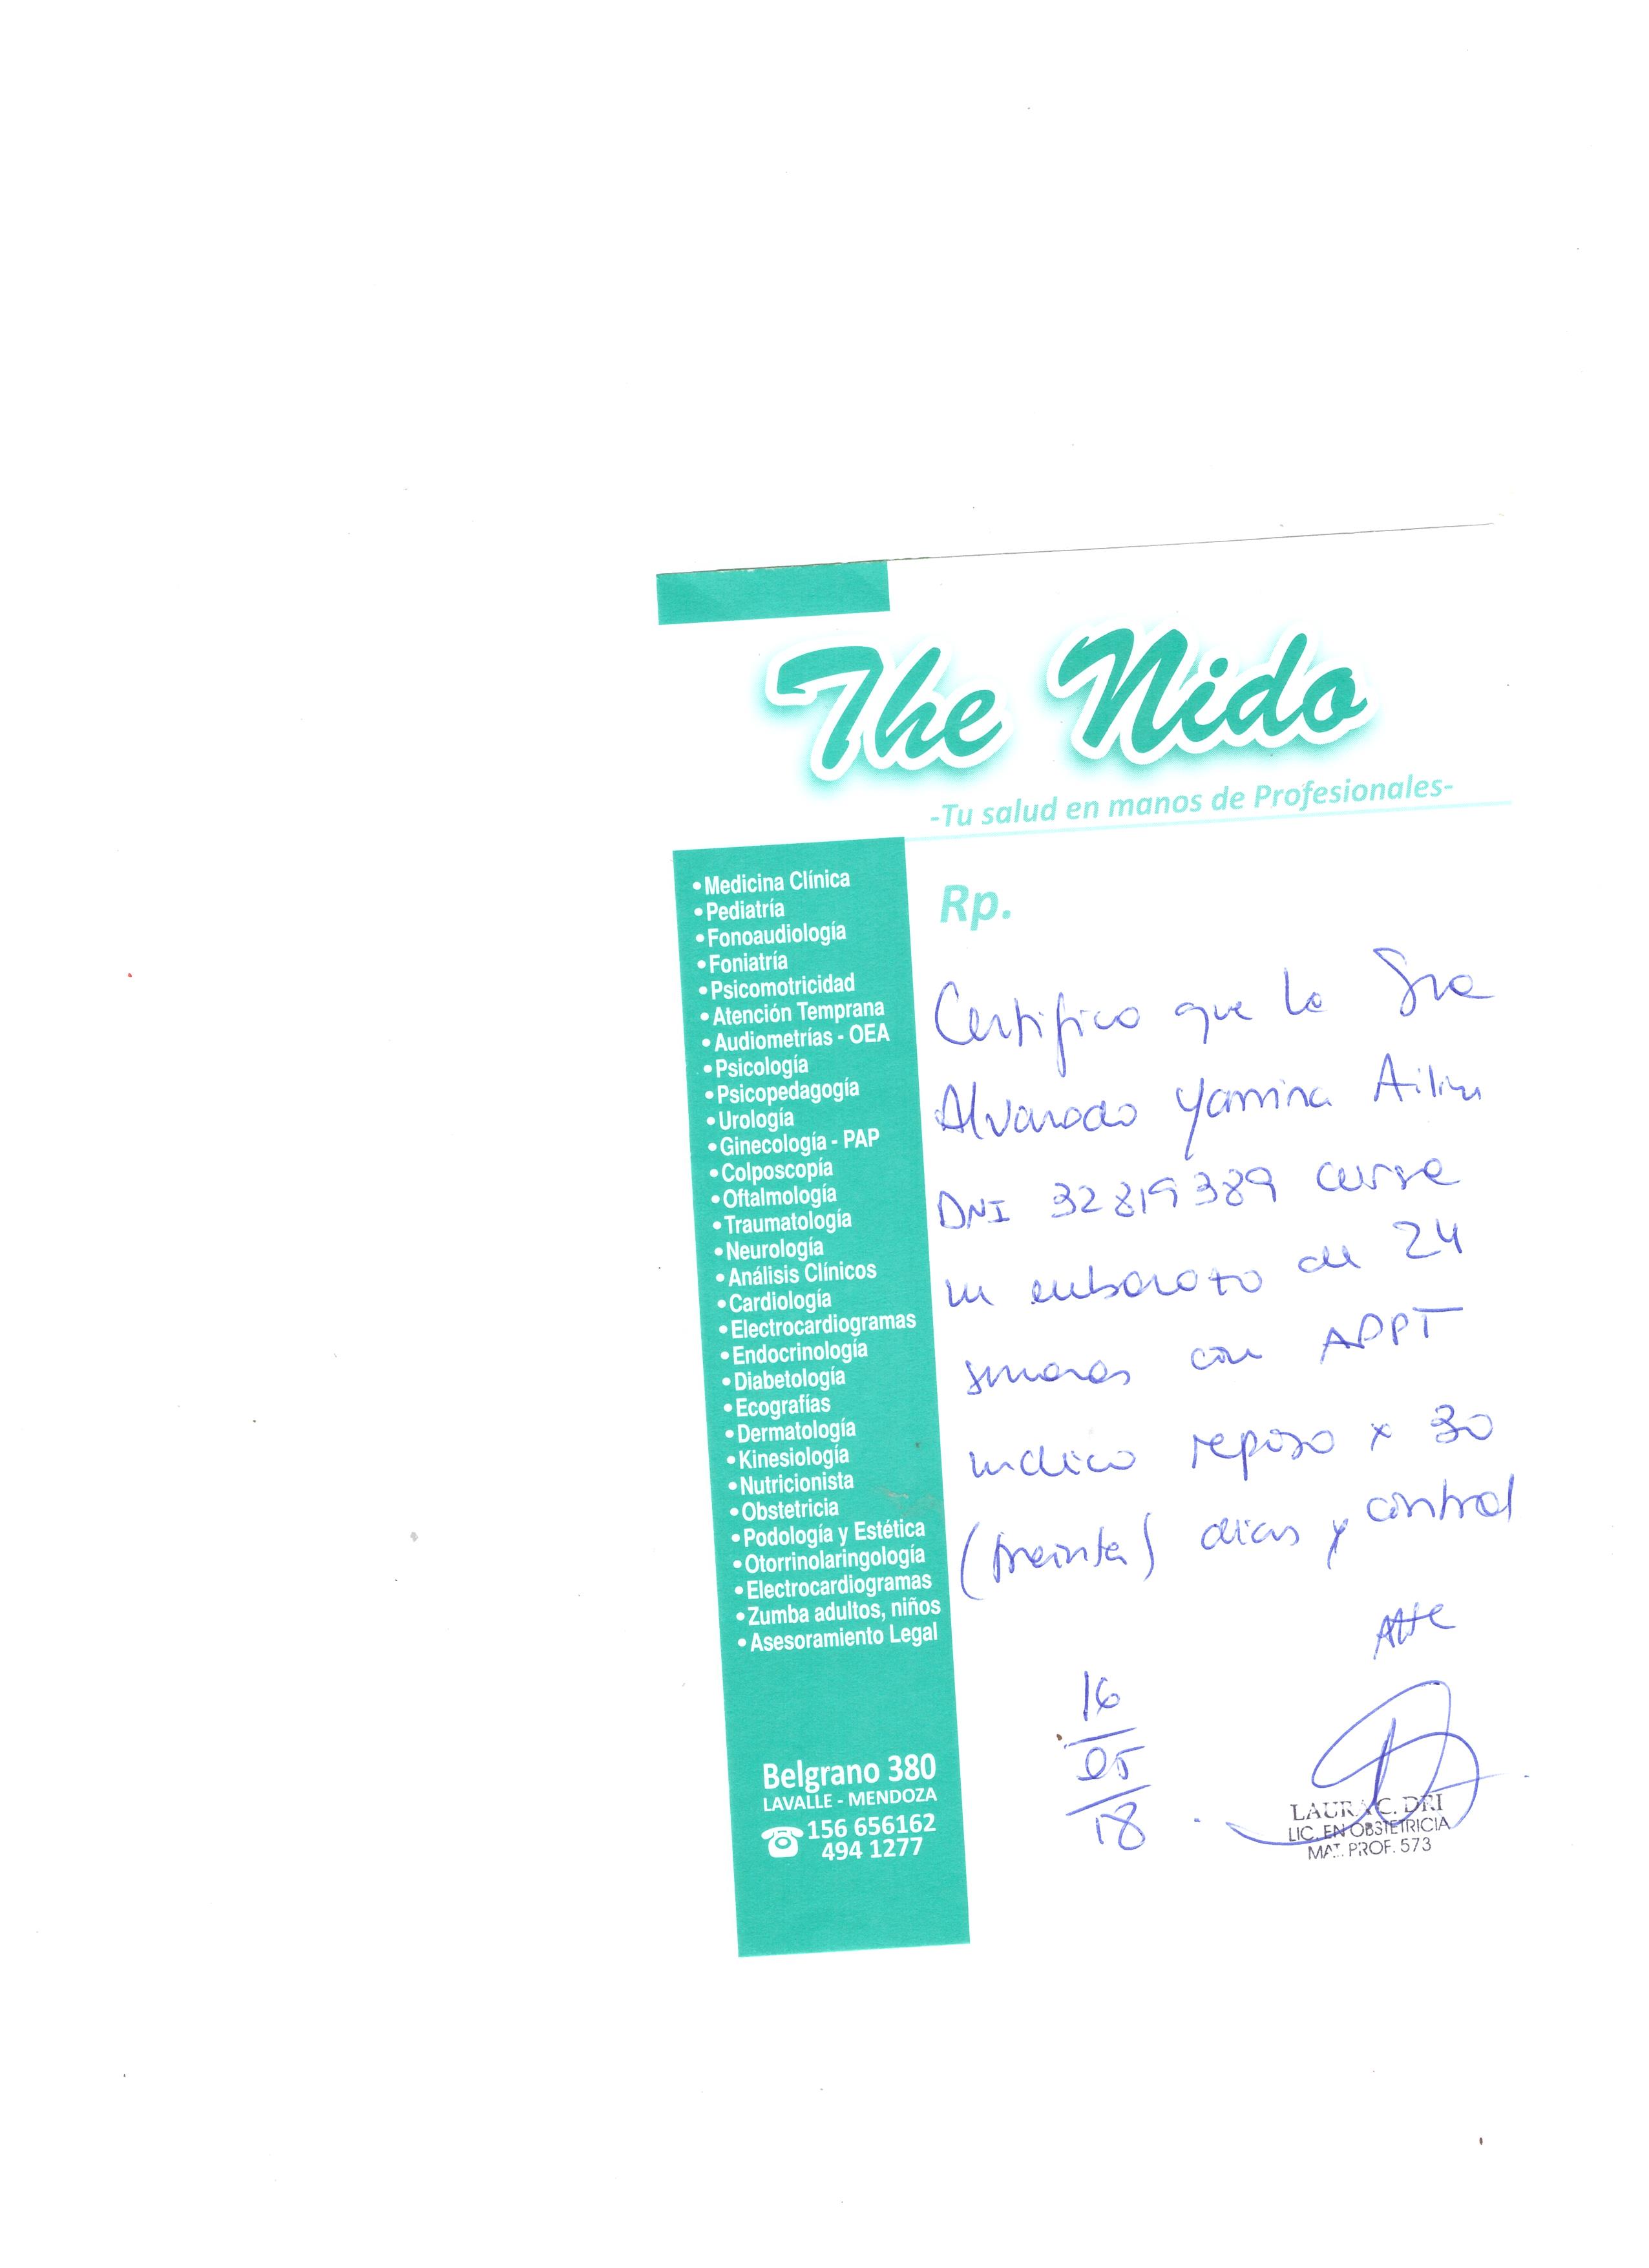 The Nido
-Tu salud en manos de Profesionales-
• Medicina Clínica
• Pediatría
• Fonoaudiología
• Foniatría
• Psicomotricidad
• Atención Temprana
• Audiometrías - OEA
• Psicología
• Psicopedagogía
• Urología
• Ginecología - PAP
• Colposcopía
• Oftalmología
• Traumatología
• Neurología
• Análisis Clínicos
• Cardiología
• Electrocardiogramas
• Endocrinología
• Diabetología
• Ecografías
• Dermatología
• Kinesiología
• Nutricionista
• Obstetricia
• Podología y Estética
• Otorrinolaringología
• Electrocardiogramas
• Zumba adultos, niños
• Asesoramiento Legal
Belgrano 380
LAVALLE - MENDOZA
156 656162
494 1277
Rp.
Certifico que la Sra
Alvarado Yamina Ailin
DNI 32819389 cursa
un embarazo de 24
semanas con APPT
indico reposo x 30
(treinta) dias y control
Atte
16
05
18
LAURA C. DRI
LIC. EN OBSTETRICIA
MAT. PROF. 573